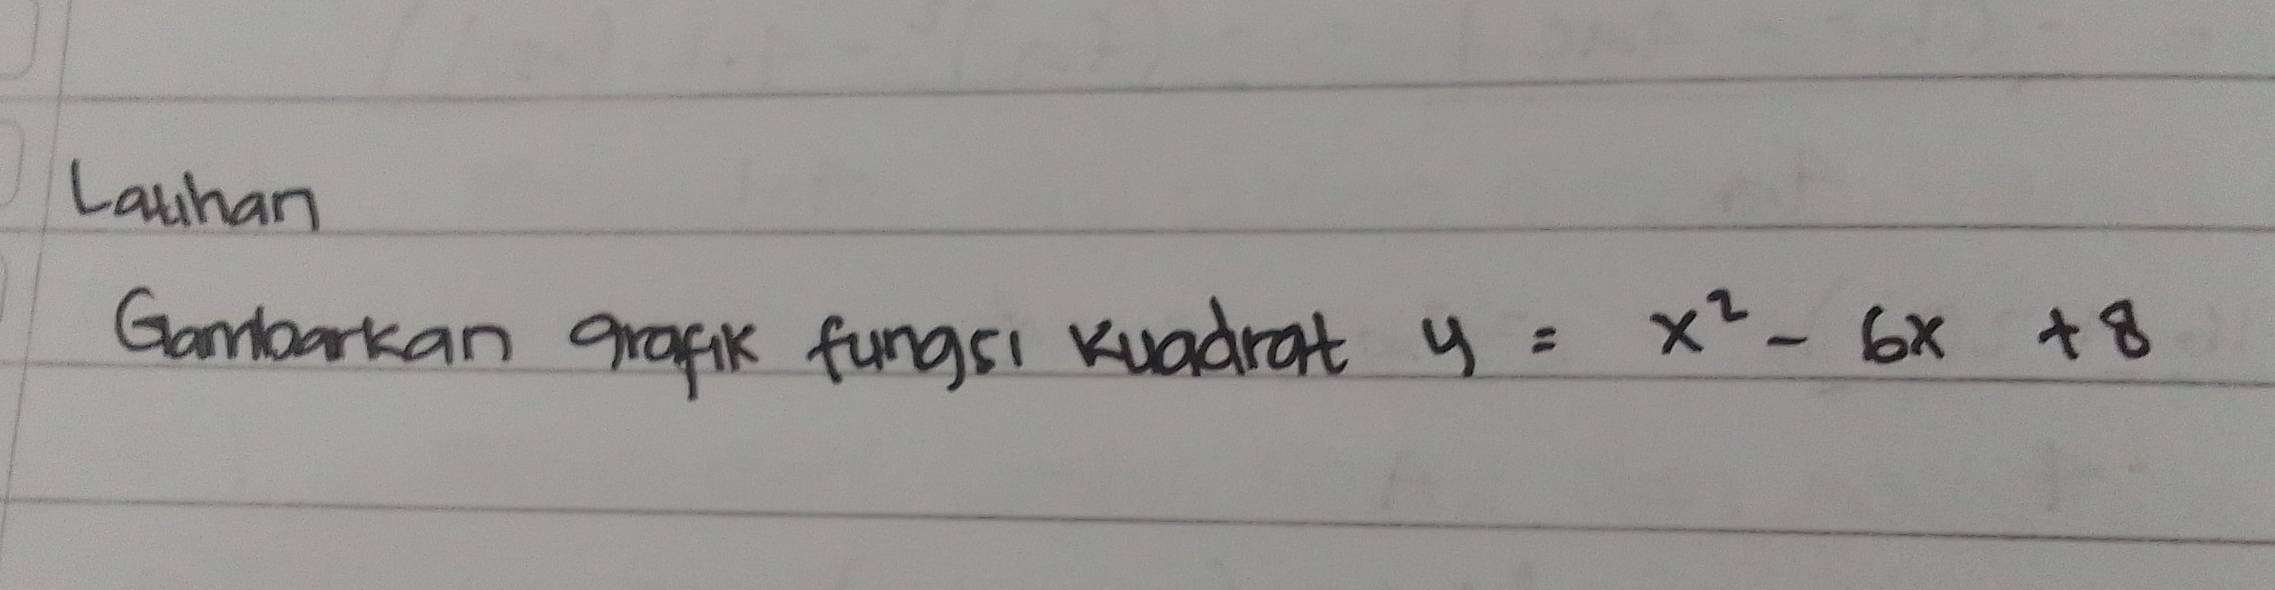 Latihan
Gambarkan grafik fungsi kuadrat y = x² - 6x + 8